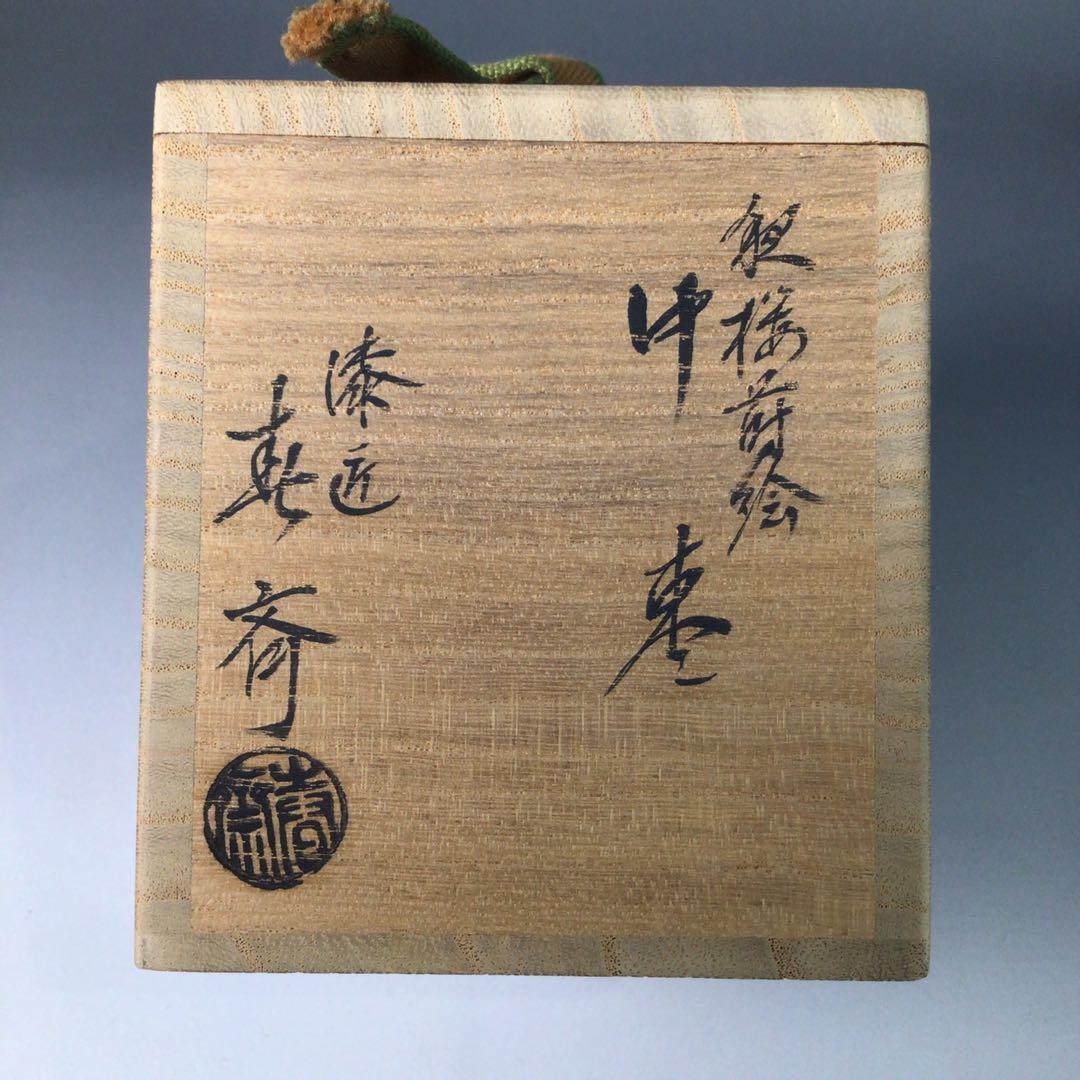 夜桜蒔絵
中棗
漆匠
春斎